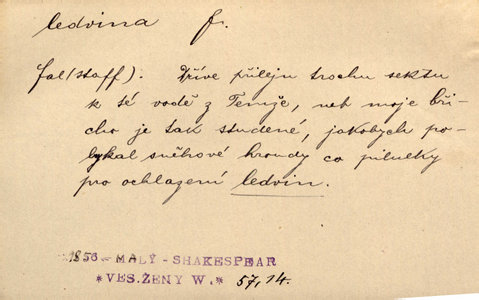 ledvina f.
Fal(staff): Dříve přileju trochu sektu
k té vodě z Temže, neb moje bři-
cho je tak studené, jakobych po-
lykal sněhové hroudy co pilulky
pro ochlazení ledvin.
1856 - MALÝ - SHAKESPEAR
*VES.ŽENY W.* 57,14.